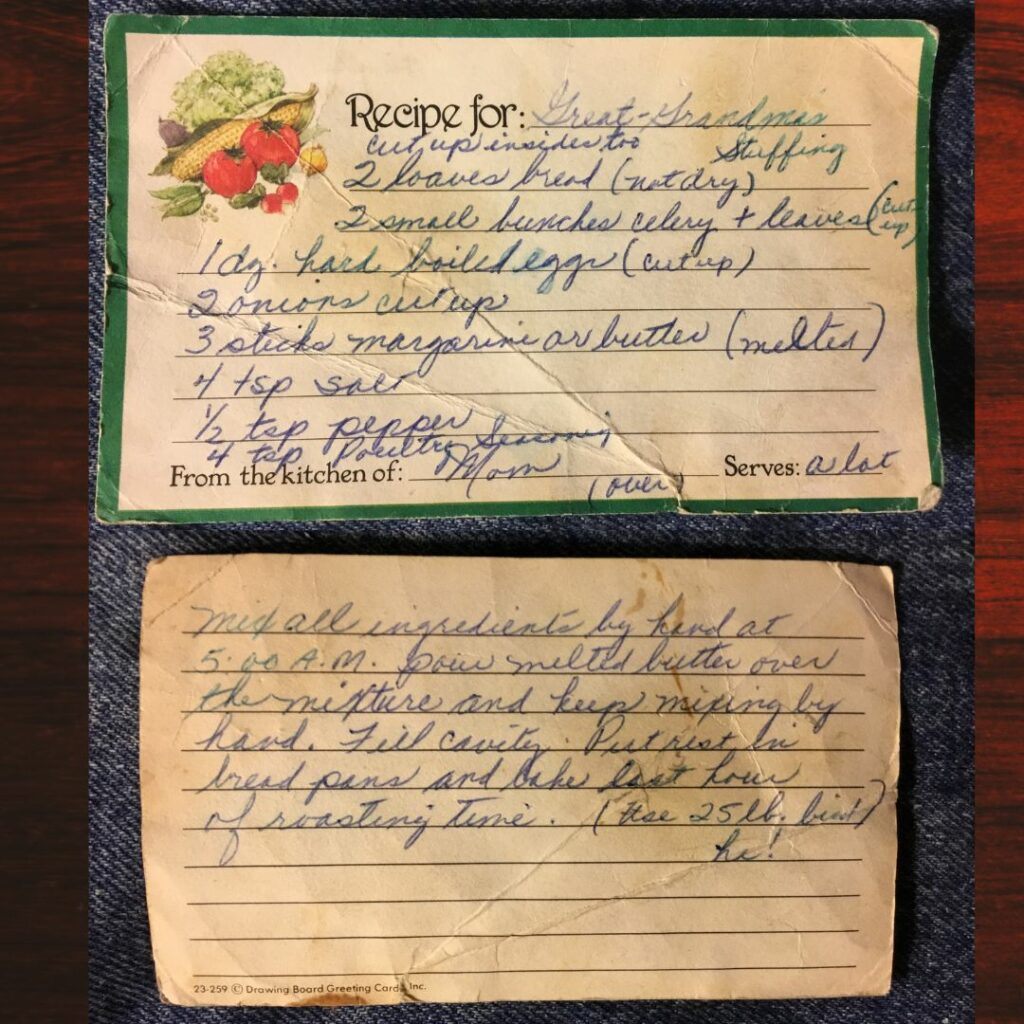 Recipe for: Great-Grandma's
cut up insides too Stuffing
2 loaves bread (not dry)
2 small bunches celery + leaves (cut up)
1 dz. hard boiled eggs (cut up)
2 onions cut up
3 sticks margarine or butter (melted)
4 tsp salt
1/2 tsp pepper
4 tsp Poultry Seasoning
From the kitchen of: Mom Serves: a lot
(over)
mix all ingredients by hand at
5:00 A.M. pour melted butter over
the mixture and keep mixing by
hand. Fill cavity. Put rest in
bread pans and bake last hour
of roasting time. (Use 25 lb. bird)
ha!
23-259 © Drawing Board Greeting Cards, Inc.